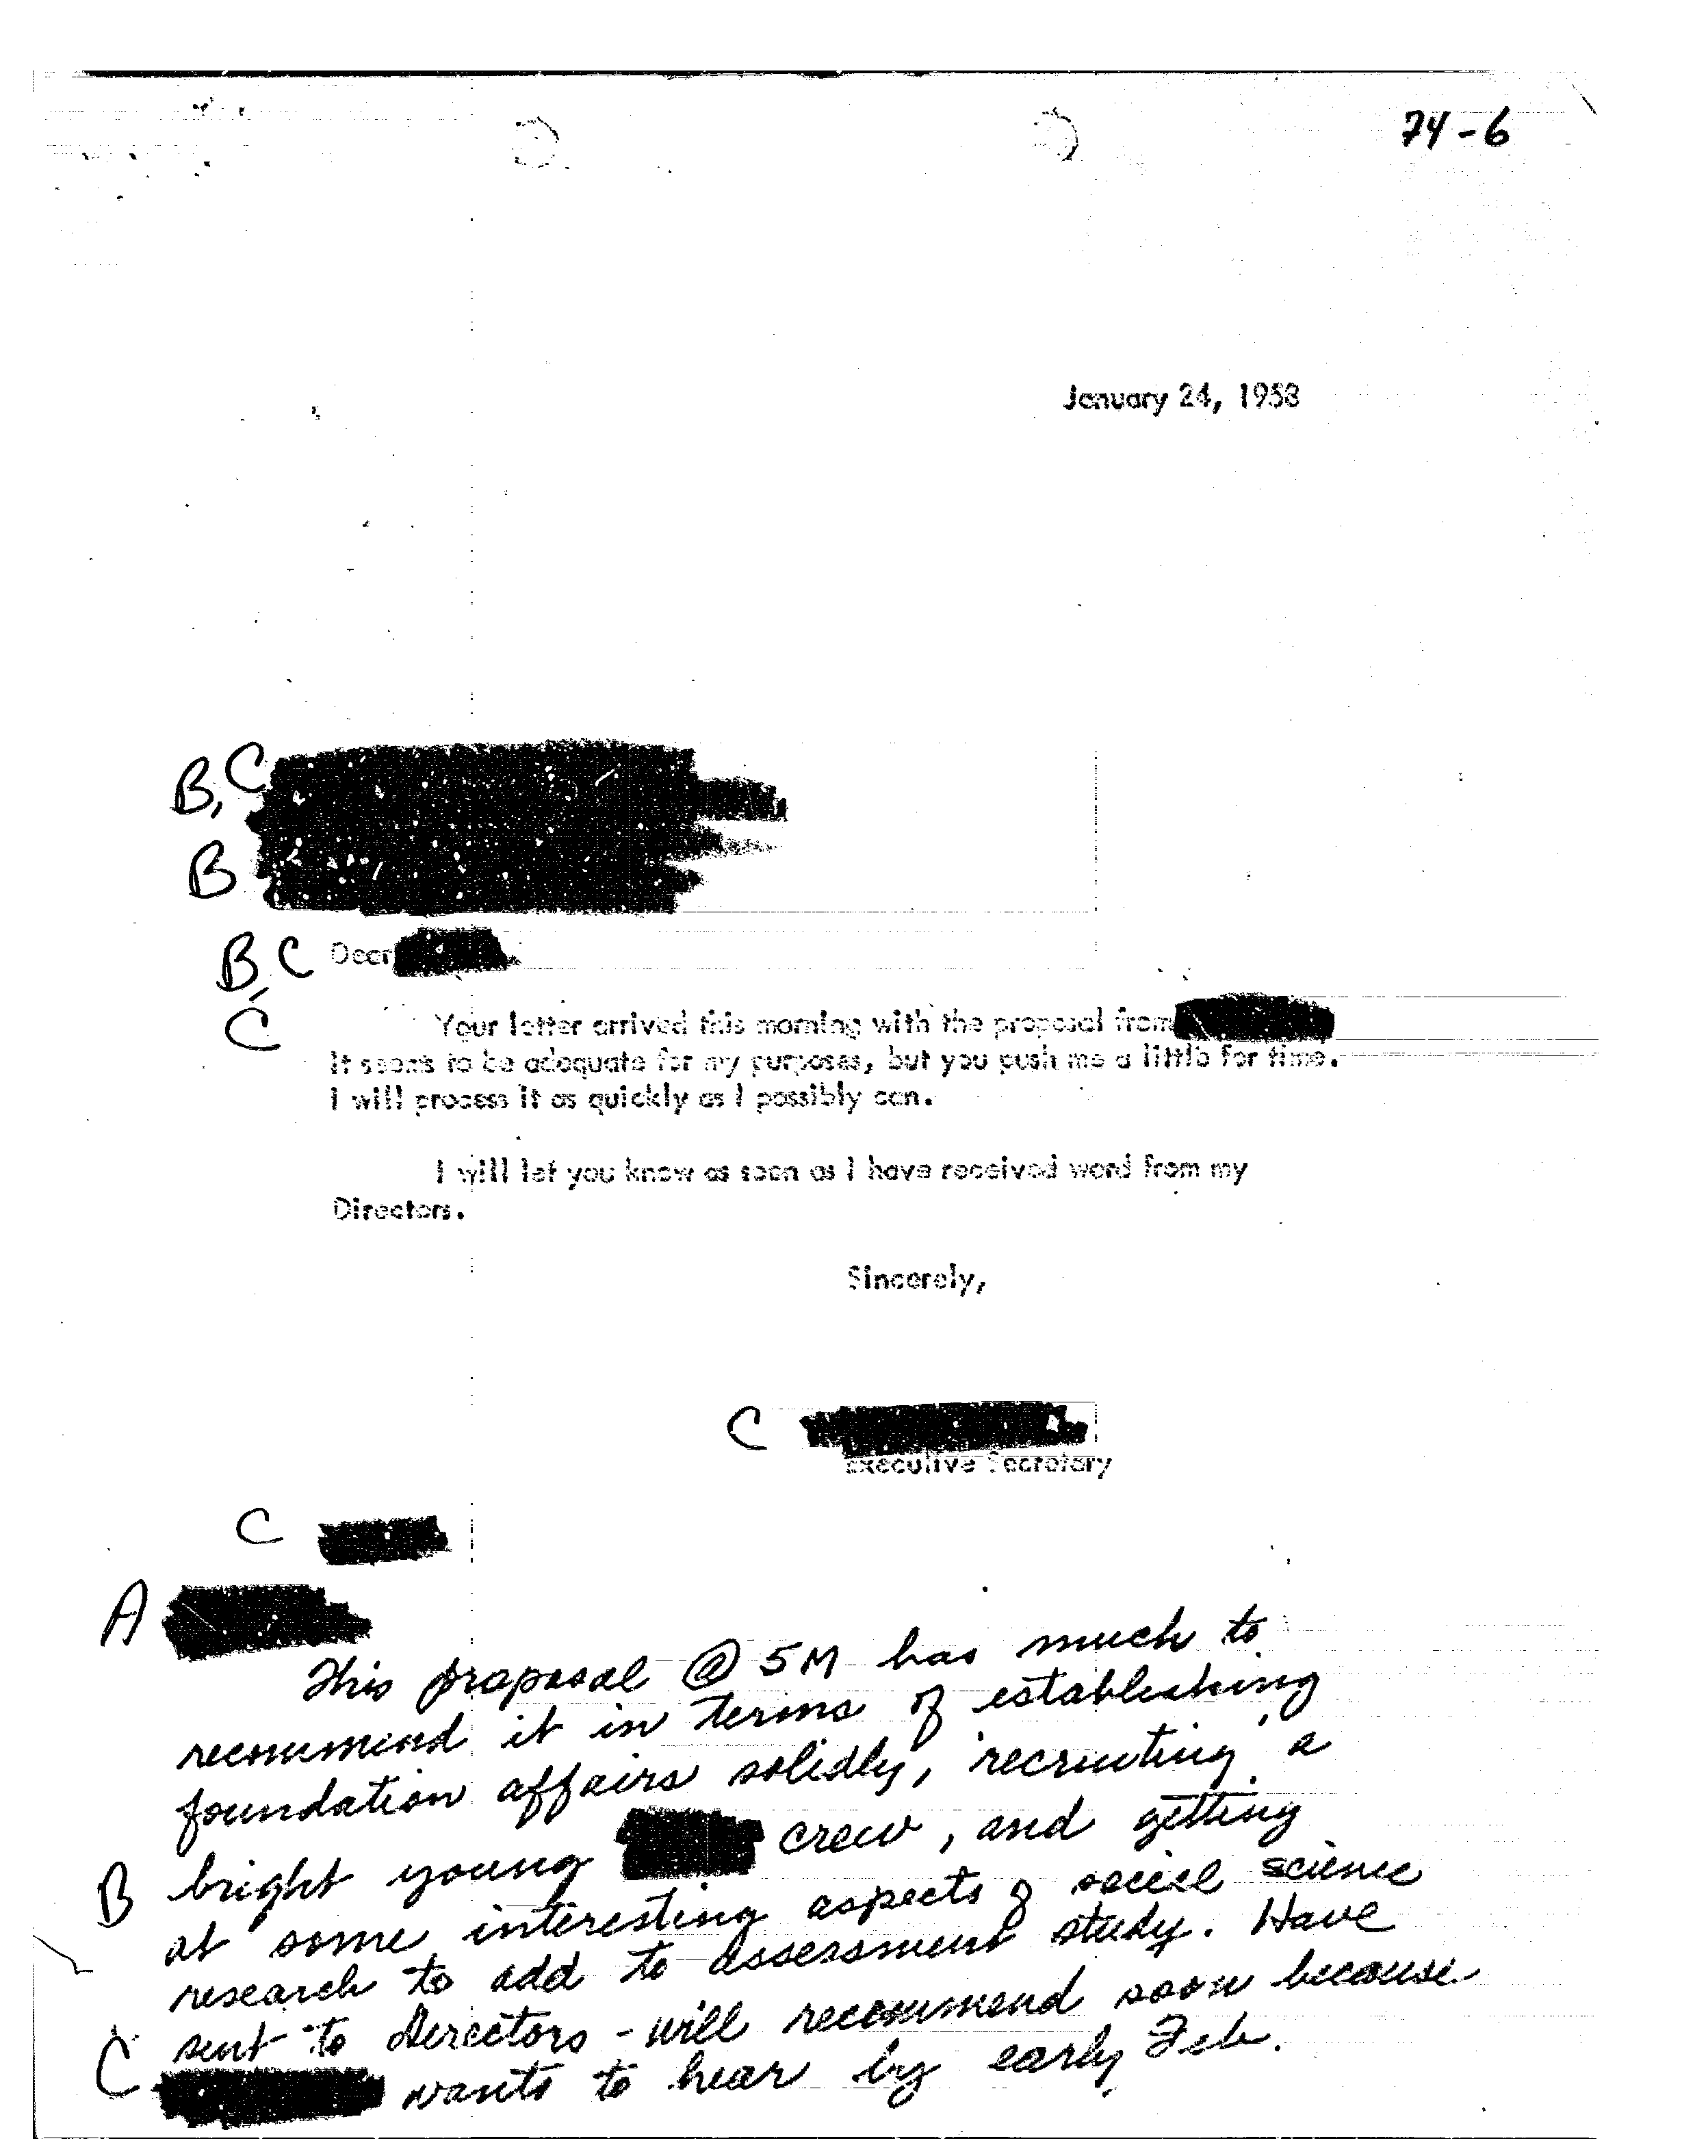 74-6
January 24, 1958
B, C
B
B, C Dear
C Your letter arrived this morning with the proposal from
It seems to be adequate for my purposes, but you push me a little for time.
I will process it as quickly as I possibly can.
I will let you know as soon as I have received word from my
Directors.
Sincerely,
C
Executive Secretary
C
A
This proposal @ 5M has much to
recommend it in terms of establishing
foundation affairs solidly, 'recruiting' a
B bright young crew, and getting
at some interesting aspects of social science
research to add to assessment study. Have
sent to Directors - will recommend soon because
C wants to hear by early Feb.